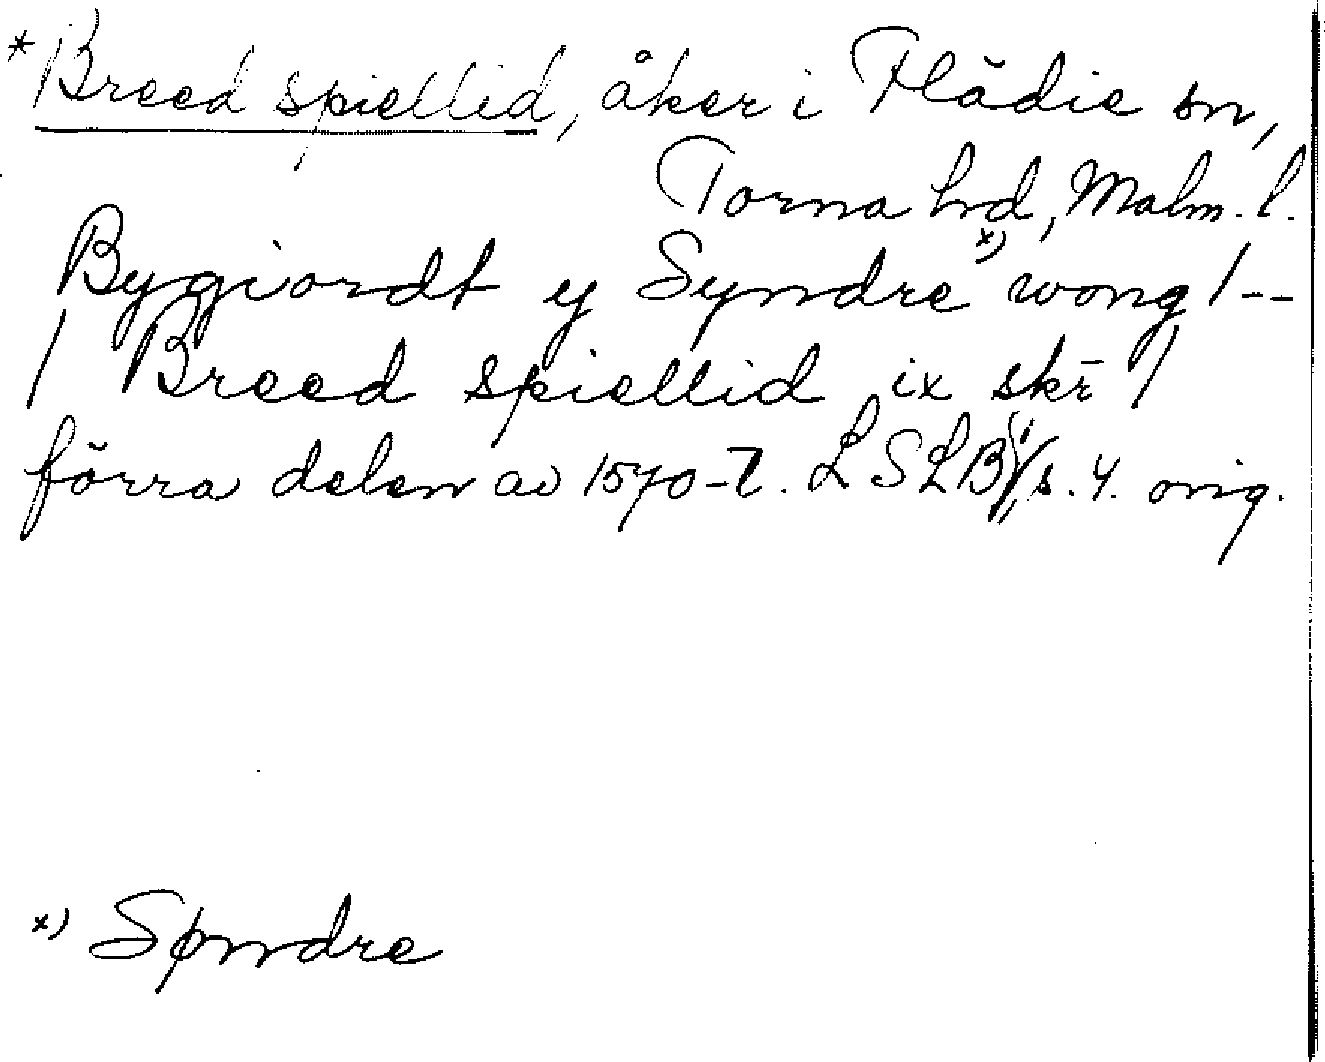 *Breed spiellid, åker i Flädie sn,
Torna hrd, Malm. l.
Bygiordt y Syndre x) wong /--
/ Breed spiellid ix skr̄ /
förra delen av 1570-t. LSLB s. 4. orig.
x) Søndre